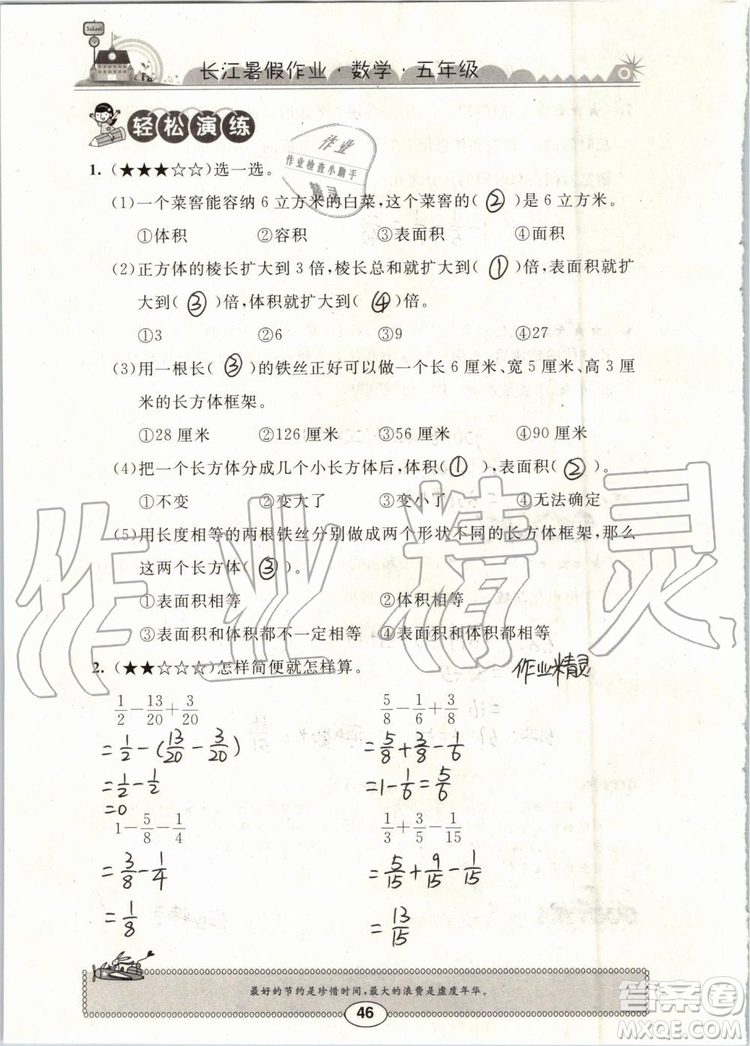 School
长江暑假作业·数学·五年级
轻松演练
作业
作业检查小助手
精灵
1.(★★★☆☆)选一选。
(1)一个菜窖能容纳6立方米的白菜,这个菜窖的(②)是6立方米。
①体积 ②容积 ③表面积 ④面积
(2)正方体的棱长扩大到3倍,棱长总和就扩大到(①)倍,表面积就扩
大到(③)倍,体积就扩大到(④)倍。
①3 ②6 ③9 ④27
(3)用一根长(③)的铁丝正好可以做一个长6厘米、宽5厘米、高3厘
米的长方体框架。
①28厘米 ②126厘米 ③56厘米 ④90厘米
(4)把一个长方体分成几个小长方体后,体积(①),表面积(②)。
①不变 ②变大了 ③变小了 ④无法确定
(5)用长度相等的两根铁丝分别做成两个形状不同的长方体框架,那么
这两个长方体(③)。
①表面积相等 ②体积相等
③表面积和体积都不一定相等 ④表面积和体积都相等
作业精灵
2.(★★☆☆☆)怎样简便就怎样算。
作业精灵
1/2-13/20+3/20 5/8-1/6+3/8
=1/2-(13/20-3/20) =5/8+3/8-1/6
=1/2-1/2 =1-1/6=5/6
=0
1-5/8-1/4 1/3+3/5-1/15
=3/8-1/4 =5/15+9/15-1/15
=1/8 =13/15
最好的节约是珍惜时间,最大的浪费是虚度年华。
46
答案圈
MXQE.COM